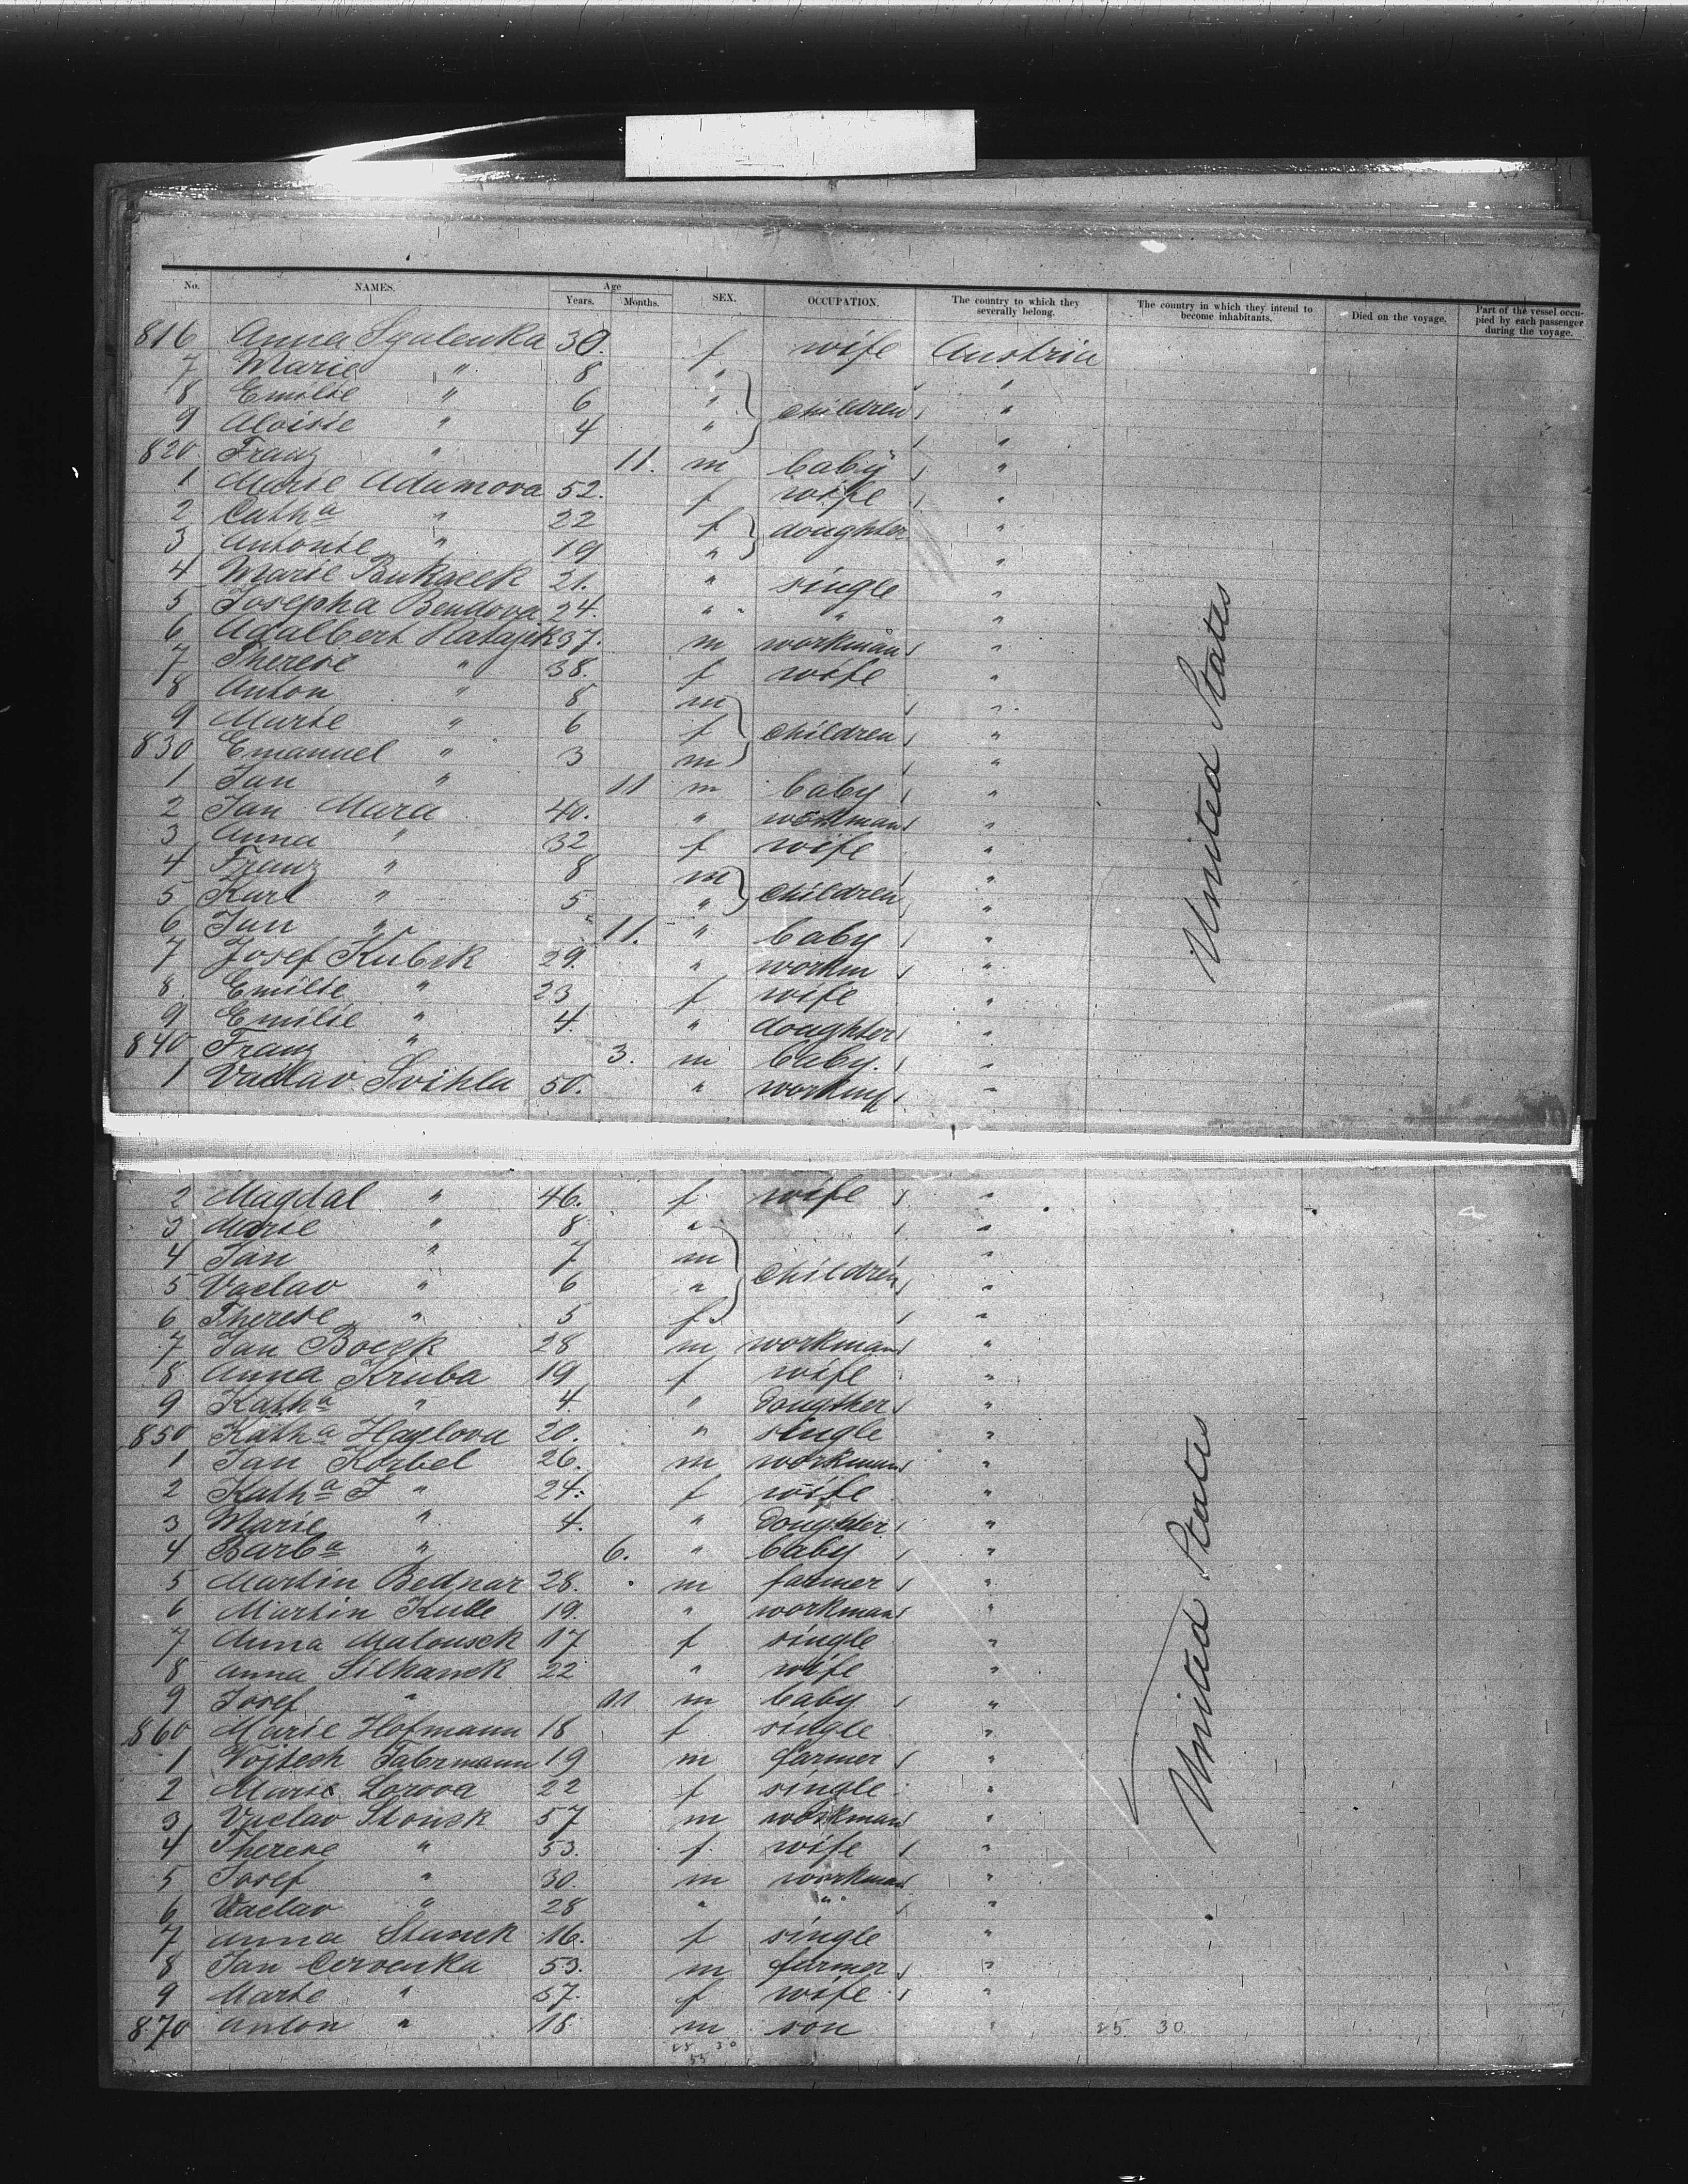 No. NAMES. Age Years. Months. SEX. OCCUPATION. The country to which they severally belong. The country in which they intend to become inhabitants. Died on the voyage. Part of the vessel occupied by each passenger during the voyage.
816 Anna Sgalenka 30. f wife Austria
7 Marie " 8 " "
8 Emilie " 6 " children "
9 Aloisie " 4 " "
820 Franz " 11. m baby "
1 Marie Adamova 52. f wife "
2 Catha " 22 f doughter "
3 Antonie " 19 " "
4 Marie Bukacek 21. " single "
5 Josepha Bendova 24. " " "
6 Adalbert Ratajik 37. m workman "
7 Therese " 38. f wife "
8 Anton " 8 m "
9 Marie " 6 f children "
830 Emanuel " 3 m "
1 Jan " 11 m baby "
2 Jan Mara 40. " workman "
3 Anna " 32 f wife "
4 Franz " 8 m "
5 Karl " 5 " children "
6 Jan " 11. " baby "
7 Josef Kubek 29. " workm "
8 Emilie " 23 f wife "
9 Emilie " 4 " doughter "
840 Franz " 3. m baby. "
1 Vaclav Svihla 50. " workm "
United States
2 Magdal " 46. f wife "
3 Marie " 8 " "
4 Jan " 7 m "
5 Vaclav " 6 " children "
6 Therese " 5 f "
7 Jan Bocek 28 m workman "
8 Anna Kruba 19 f wife "
9 Katha " 4. " Dougther "
850 Katha Haylova 20. " single "
1 Jan Korbel 26. m workman "
2 Katha F " 24. f wife "
3 Marie " 4. " Doughter "
4 Barba " 6. " baby "
5 Martin Bednar 28. m farmer "
6 Martin Kulle 19. " workman "
7 Anna Malousek 17 f single "
8 Anna Silhanek 22 " wife "
9 Josef " 11 m baby "
860 Marie Hofmann 18 f single "
1 Vojtech Fabrmann 19 m farmer "
2 Marie Lorova 22 f single "
3 Vaclav Slonek 57 m workman "
4 Therese " 53. f wife "
5 Josef " 30. m workman "
6 Vaclav " 28 " " "
7 Anna Stanek 16. f single "
8 Jan Cervenka 53. m farmer "
9 Marie " 57. f wife "
870 Anton " 18 m son " 25 30
United States
25 30
55